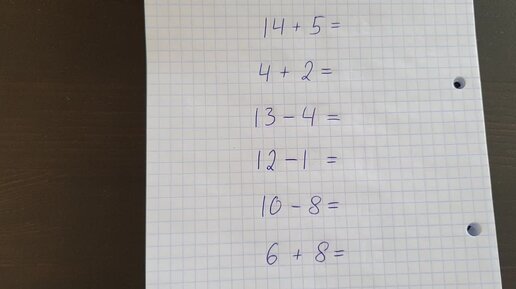 14 + 5 =
4 + 2 =
13 - 4 =
12 - 1 =
10 - 8 =
6 + 8 =